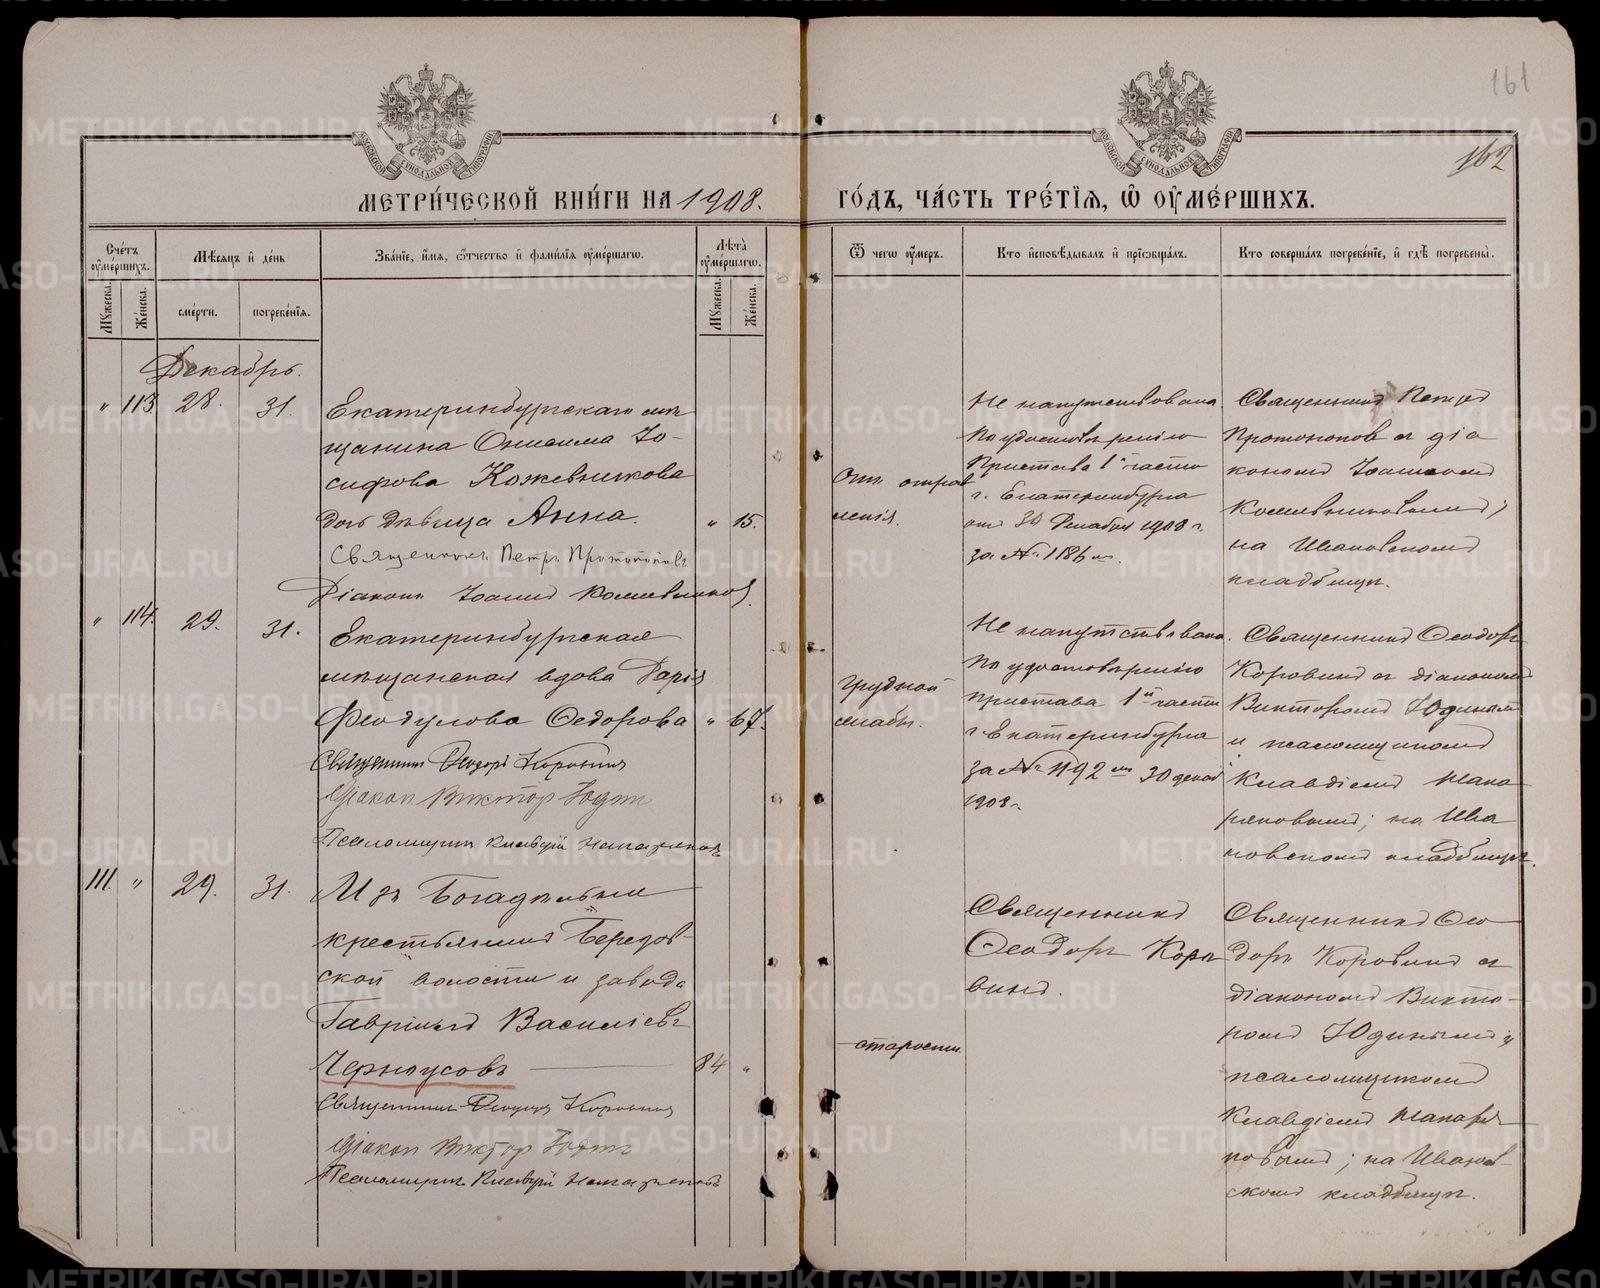 161
162
МЕТРИ́ЧЕСКОЙ КНИ́ГИ НА 1908.
ГО́ДЪ, ЧА́СТЬ ТРЕ́ТІѦ, Ѡ҆ ОУ҆МЕ́РШИХЪ.
Сче́тъ оу҆ме́ршихъ.
Мꙋ́жеска.
Же́нска.
Мѣ́сѧцъ и҆ де́нь
сме́рти.
погребе́нїѧ.
Зва́нїе, и҆́мѧ, ѻ҆́тчество и҆ фами́лїѧ оу҆ме́ршагѡ.
Лѣ́та оу҆ме́ршагѡ.
Мꙋ́жеска.
Же́нска.
Ѿ чегѡ̀ оу҆́меръ.
Кто̀ и҆сповѣ́дывалъ и҆ прїѡбща́лъ.
Кто̀ соверша́лъ погребе́нїе, и҆ гдѣ̀ погребены̀.
Декабрь.
" 113. 28. 31.
Екатеринбургскаго мѣ-
щанина Онисима Іо-
сифова Кожевникова
дочь дѣвица Анна. " 15.
Священникъ Петръ Протопоповъ
Діаконъ Іоаннъ Кожевниковъ
Отъ отрав
ленія.
Не напутствована
По удостовѣренію
Пристава 1й части
г. Екатеринбурга
отъ 30 Декабря 1908 г.
за № 1186
Священникъ Петръ
Протопоповъ съ діа
кономъ Іоанномъ
Кожевниковымъ;
на Ивановскомъ
кладбищѣ.
" 114. 29. 31.
Екатеринбургская
мѣщанская вдова Дарія
Феодулова Федорова " 67.
Священникъ Ѳеодоръ Коровинъ
Діаконъ Викторъ Юдинъ
Псаломщикъ Клавдій
грудной
жабы.
Не напутствована.
По удостовѣренію
пристава 1й части
г. Екатеринбурга
за № 1192 30 декаб
1908 г.
Священникъ Ѳеодоръ
Коровинъ съ діакономъ
Викторомъ Юдинымъ
и псаломщикомъ
Клавдіемъ
на Ива
новскомъ кладбищѣ.
111. " 29. 31.
Изъ Богадѣльни
крестьянинъ Березов-
ской волости и завода
Гавріилъ Василіевъ
Черноусовъ 84 "
Священникъ Ѳеодоръ Коровинъ
Діаконъ Викторъ Юдинъ
Псаломщикъ Клавдій
старости.
Священникъ
Ѳеодоръ Коро
винъ.
Священникъ Ѳео
доръ Коровинъ съ
діакономъ Викто-
ромъ Юдинымъ и
псаломщикомъ
Клавдіемъ
на Иванов-
скомъ кладбищѣ.
METRIKI.GASO-URAL.RU